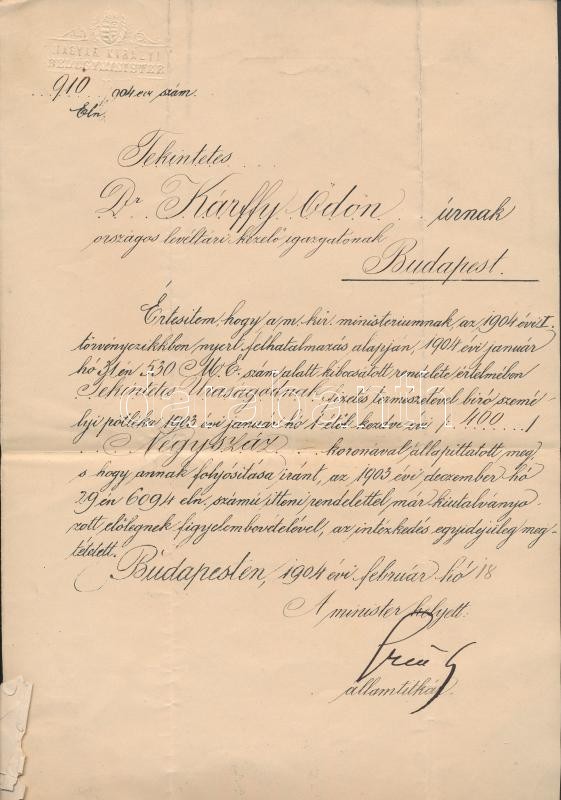 MAGYAR KIRÁLYI
BELÜGYMINISTER
910 904 évi szám.
Eln.
Tekintetes
Dr. Kárffy Ödön úrnak
országos levéltári kezelő igazgatónak
Budapest.
Értesitem, hogy a m. kir. ministeriumnak az 1904 évi I.
törvényczikkben nyert felhatalmazás alapján, 1904 évi január
hó 31 én 530 M. E. szám alatt kibocsátott rendelete értelmében
Tekintetes Uraságodnak fizetés termeszetével biró szemé-
lyi pótléka 1903 évi január hó 1-étől kezdve évi 400
Négyszáz koronával állapittatott meg,
s hogy annak folyósitása iránt, az 1903 évi deczember hó
29 én 6094 eln. számú itteni rendelettel már kiutalványo-
zott előlegnek figyelembevételével, az intézkedés egyidejüleg meg-
tétetett.
Budapesten, 1904 évi február hó 18
A minister helyett:
államtitkár.
darabanth